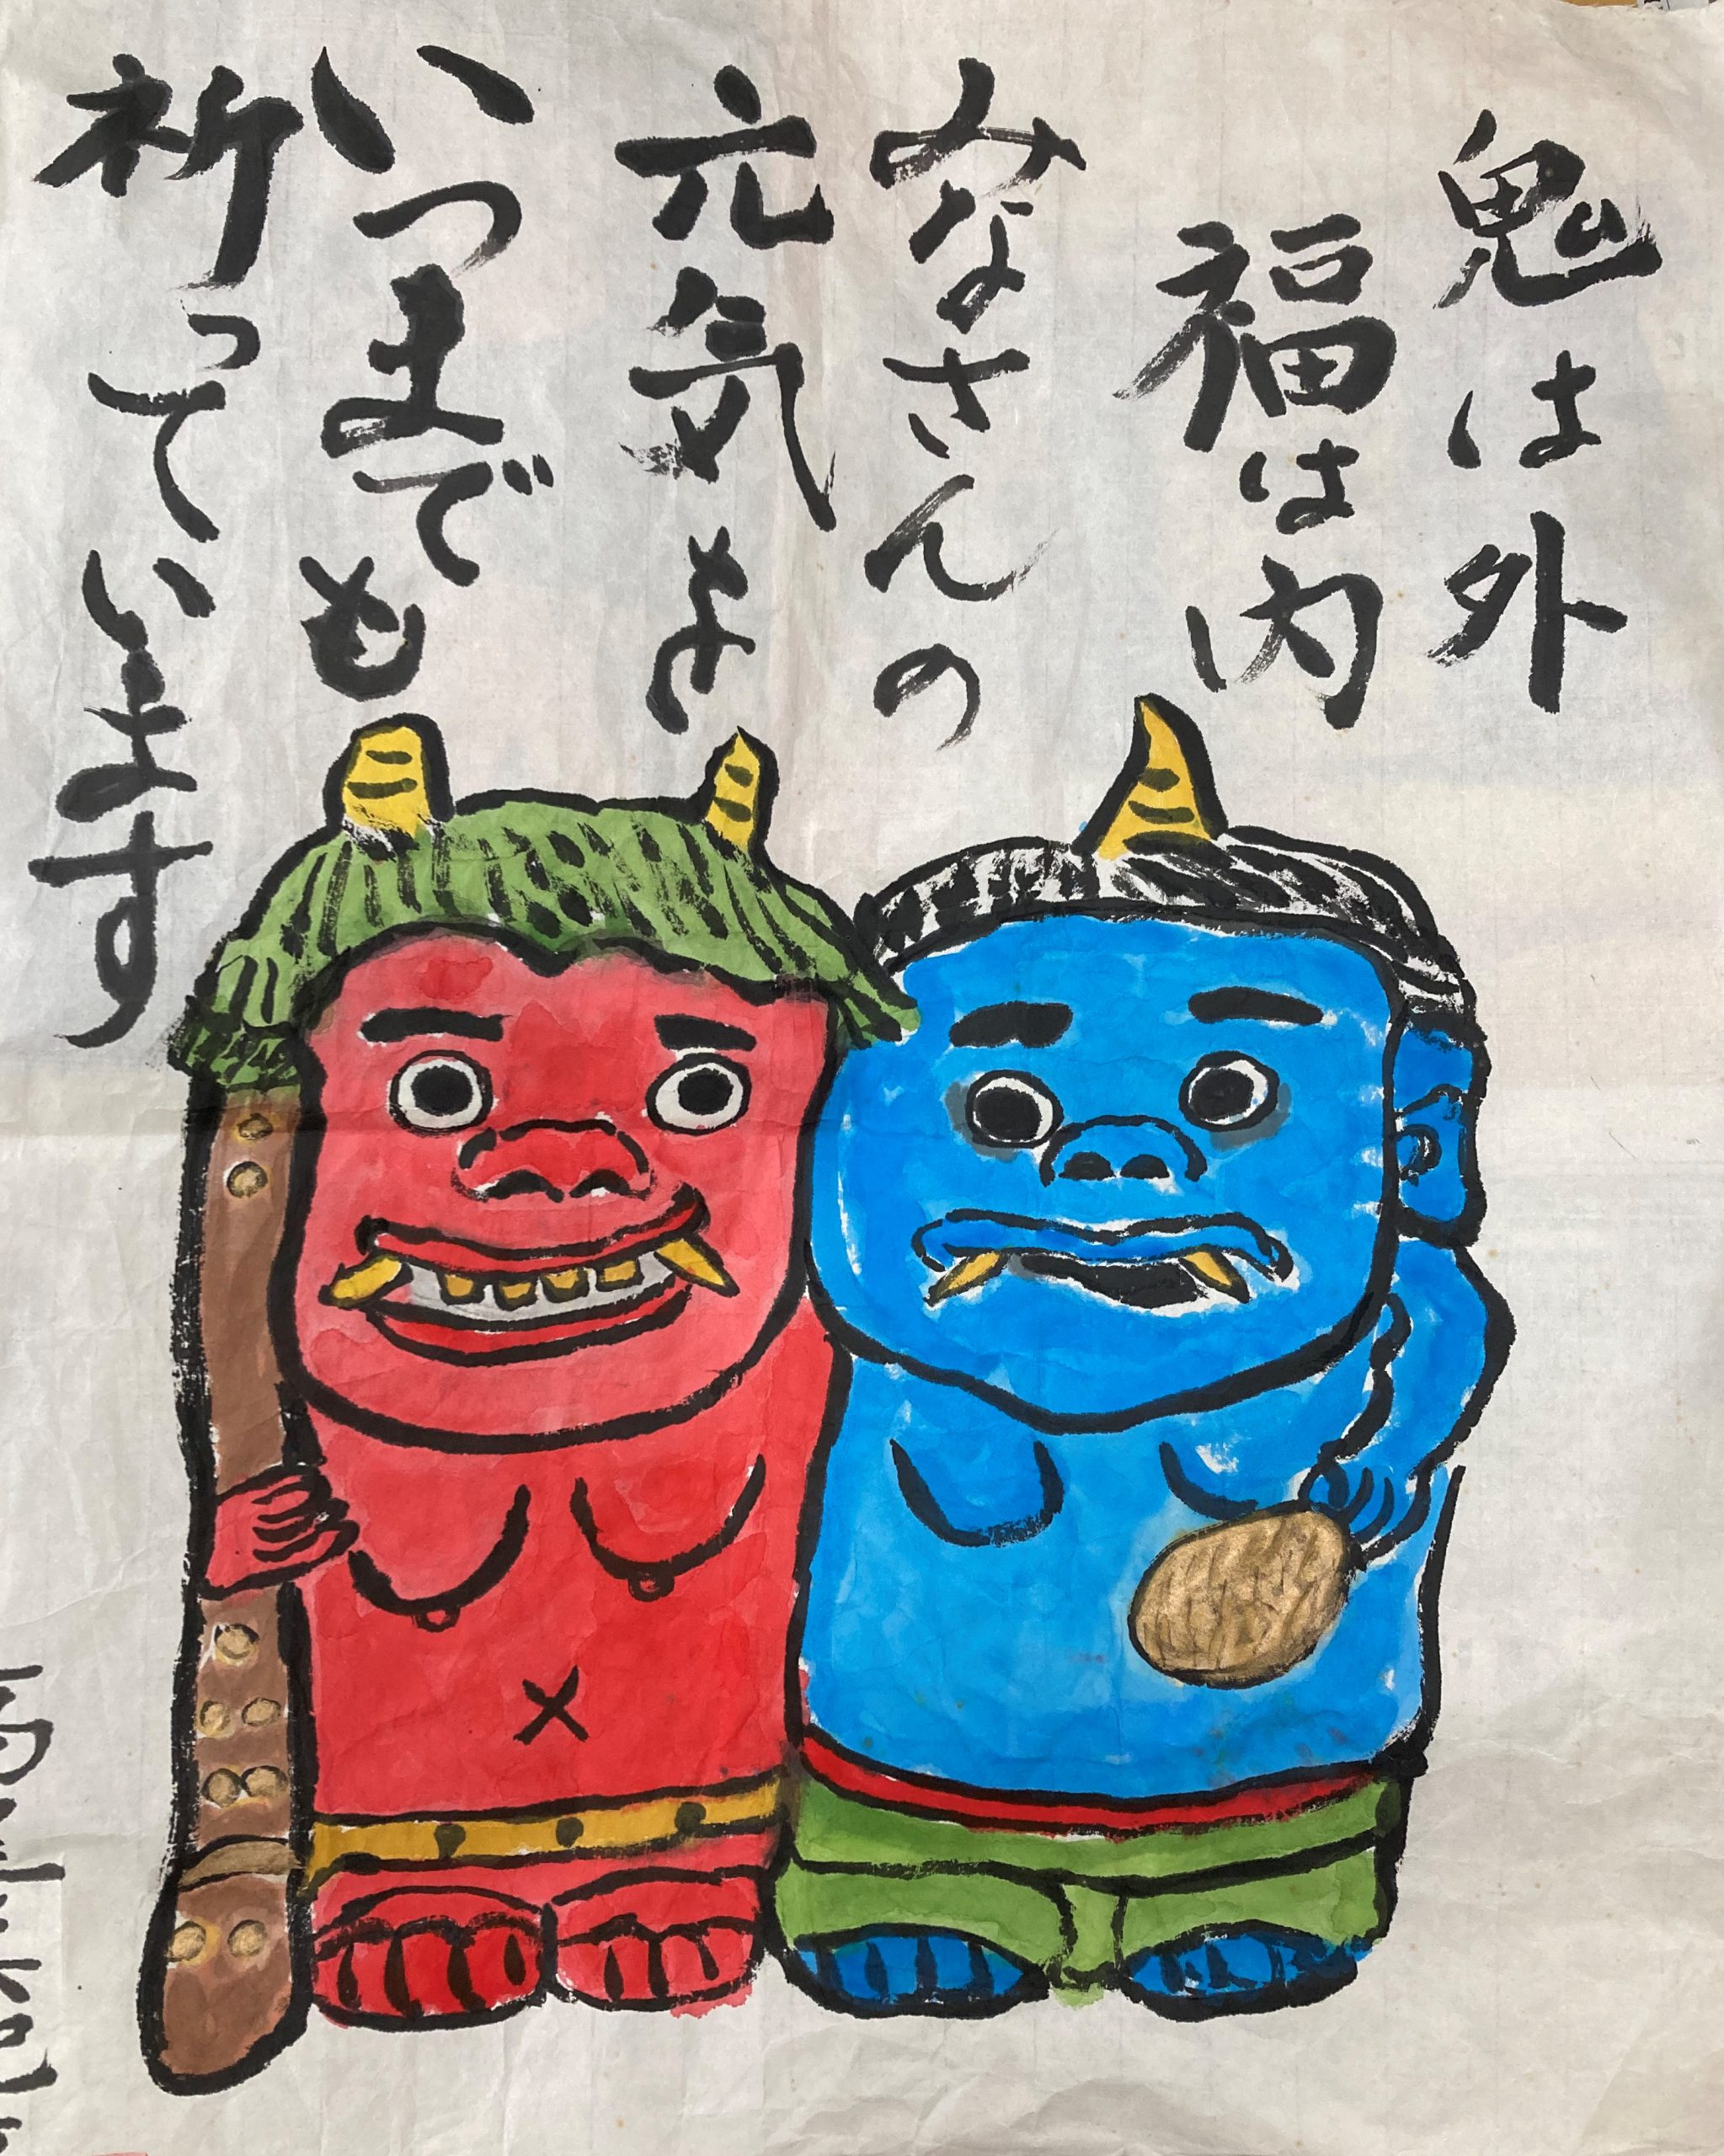 鬼は外
福は内
みなさんの
元気よ
いつまでも
祈っています